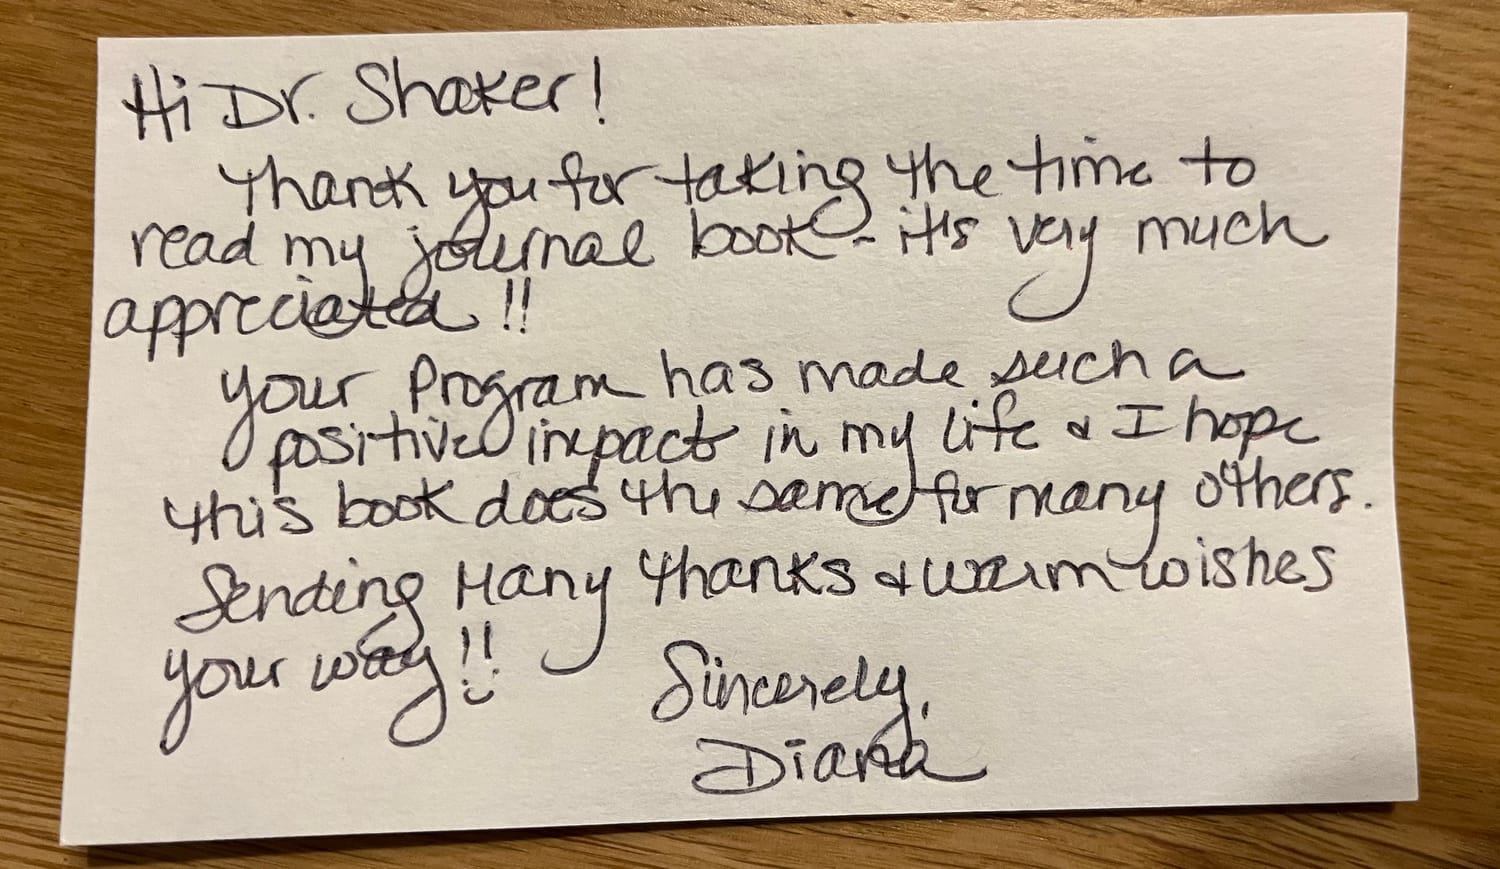 Hi Dr. Shaker!
Thank you for taking the time to
read my journal book - it's very much
appreciated!!
Your Program has made such a
positive impact in my life & I hope
this book does the same for many others.
Sending Many thanks & warm wishes
your way!!
Sincerely,
Diana